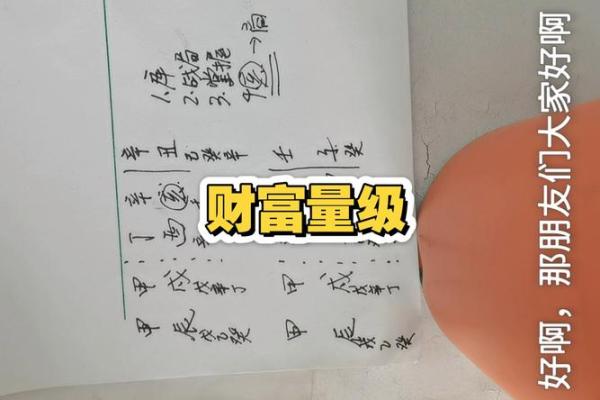 1.库
2.战局
3.掌握
4.
辛 丑 己癸辛 壬 子 癸
辛
财富量级
丁 酉
甲 戌 戊辛丁 甲 戌 戊辛丁
甲 辰 戊乙癸 甲 辰 戊乙癸
好啊，那朋友们大家好啊